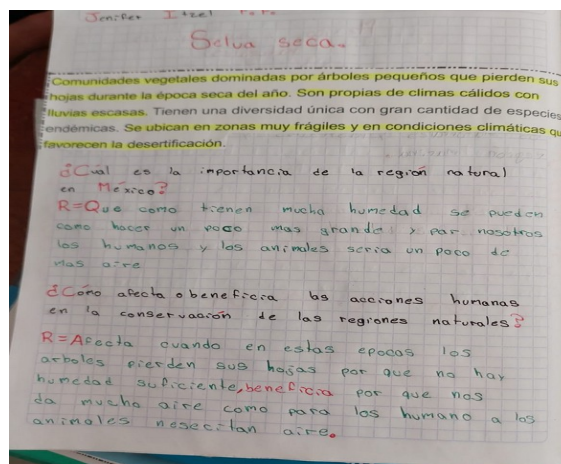 Jenifer Itzel
Selva seca.
Comunidades vegetales dominadas por árboles pequeños que pierden sus
hojas durante la época seca del año. Son propias de climas cálidos con
lluvias escasas. Tienen una diversidad única con gran cantidad de especies
endémicas. Se ubican en zonas muy frágiles y en condiciones climáticas qu
favorecen la desertificación.
¿Cuál es la inportancia de la región natural
en México?
R=Que como tienen mucha humedad se pueden
como hacer un poco mas grande y par nosotros
los humanos y los animales seria un poco de
mas aire
¿Cómo afecta o beneficia las acciones humanas
en la conservación de las regiones naturales?
R=Afecta cuando en estas epocas los
arboles pierden sus hojas por que no hay
humedad suficiente, beneficia por que nos
da mucho aire como para los humano a los
animales nesecitan aire.